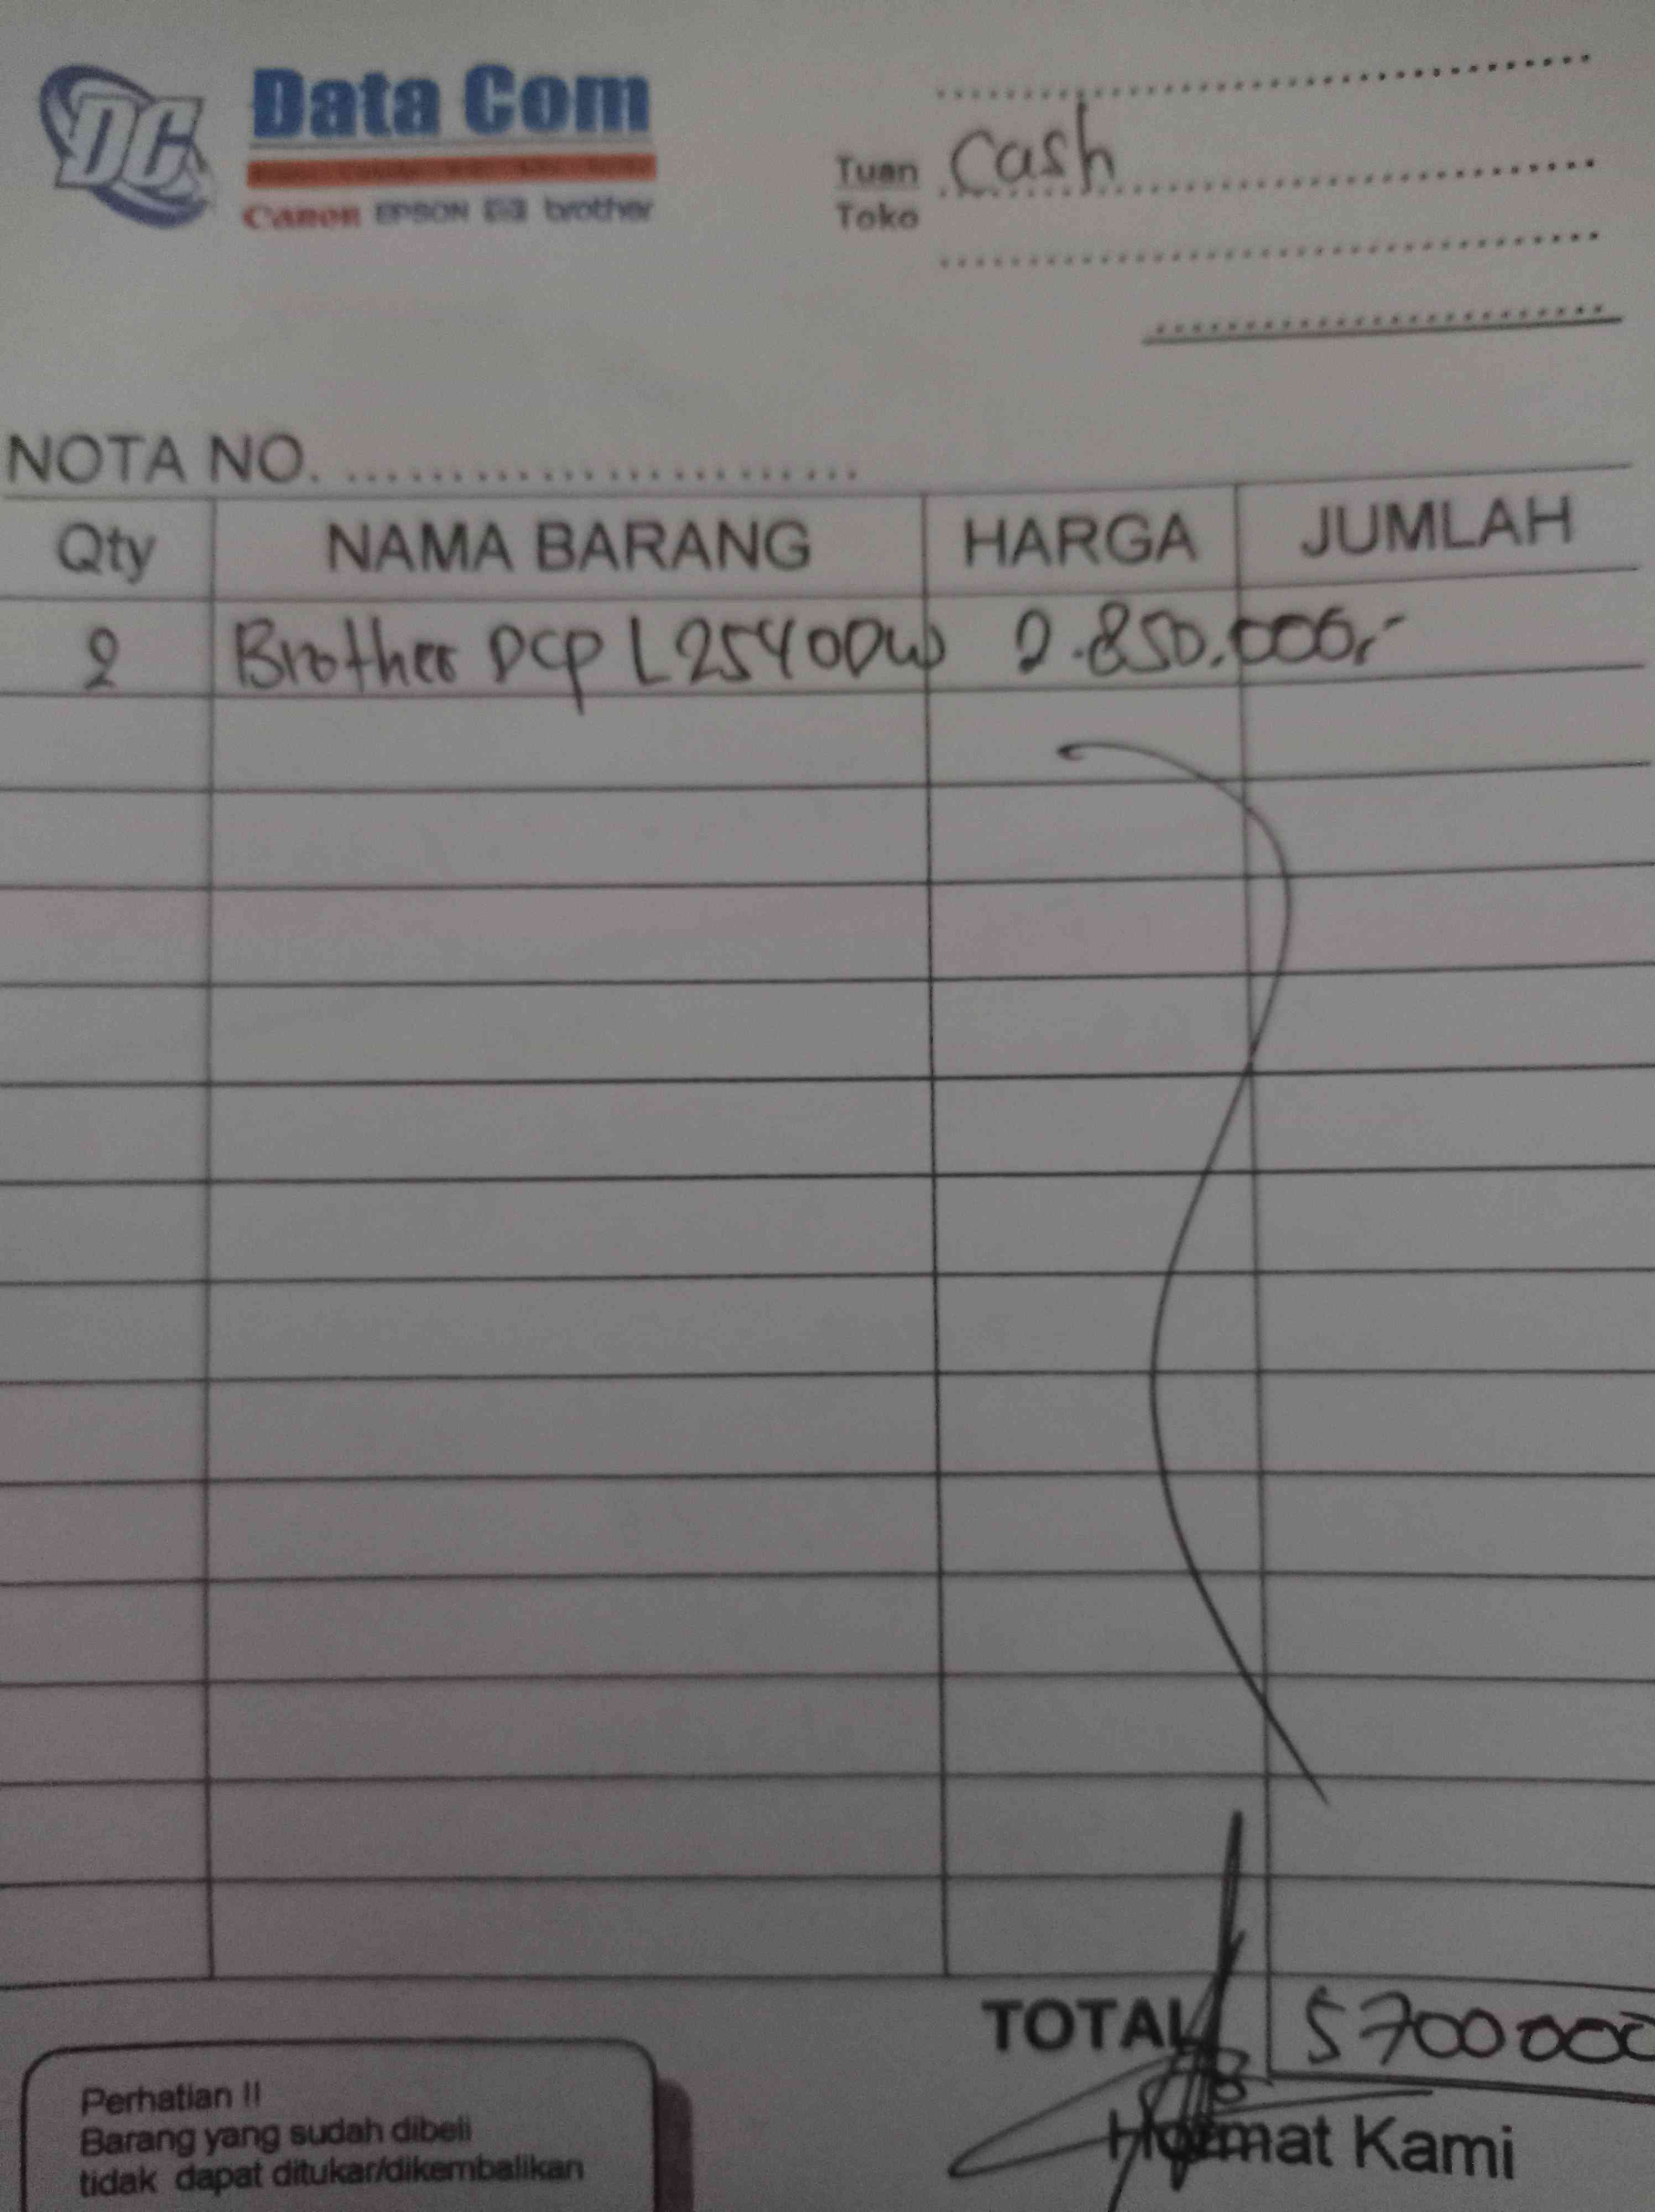 DC
Data Com
Canon EPSON brother
Tuan Cash
Toko
NOTA NO.
Qty NAMA BARANG HARGA JUMLAH
2 Brother DCP L2540DW 2.850.000,-
TOTAL 5700000
Perhatian !!
Barang yang sudah dibeli
tidak dapat ditukar/dikembalikan
Hormat Kami